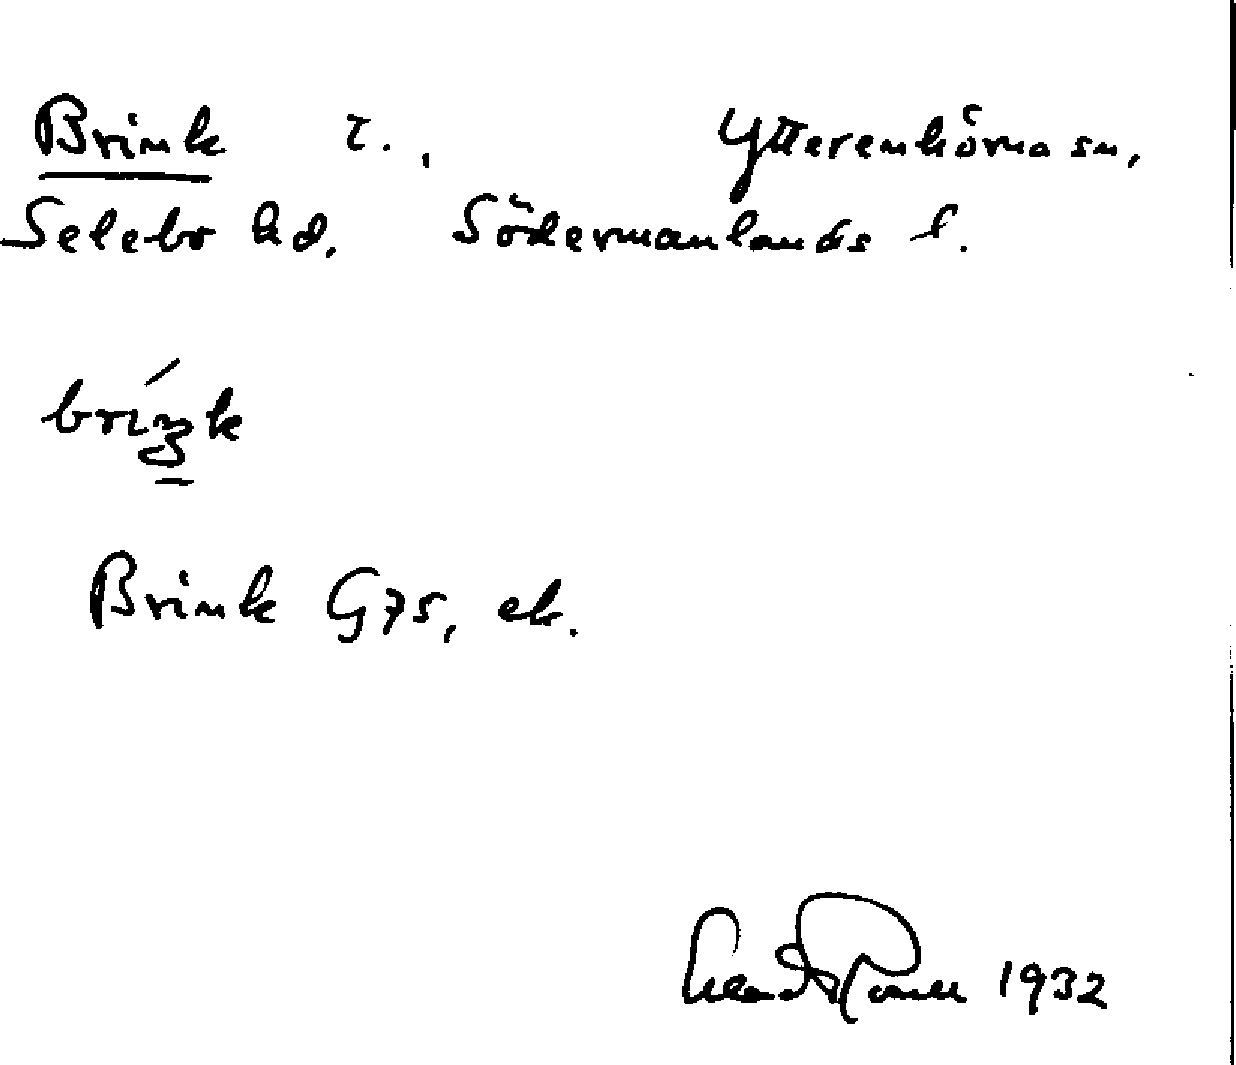 Brink t., Ytterenhörna sn,
Selebo hd. Södermanlands l.
Brink G75, ek.
1932